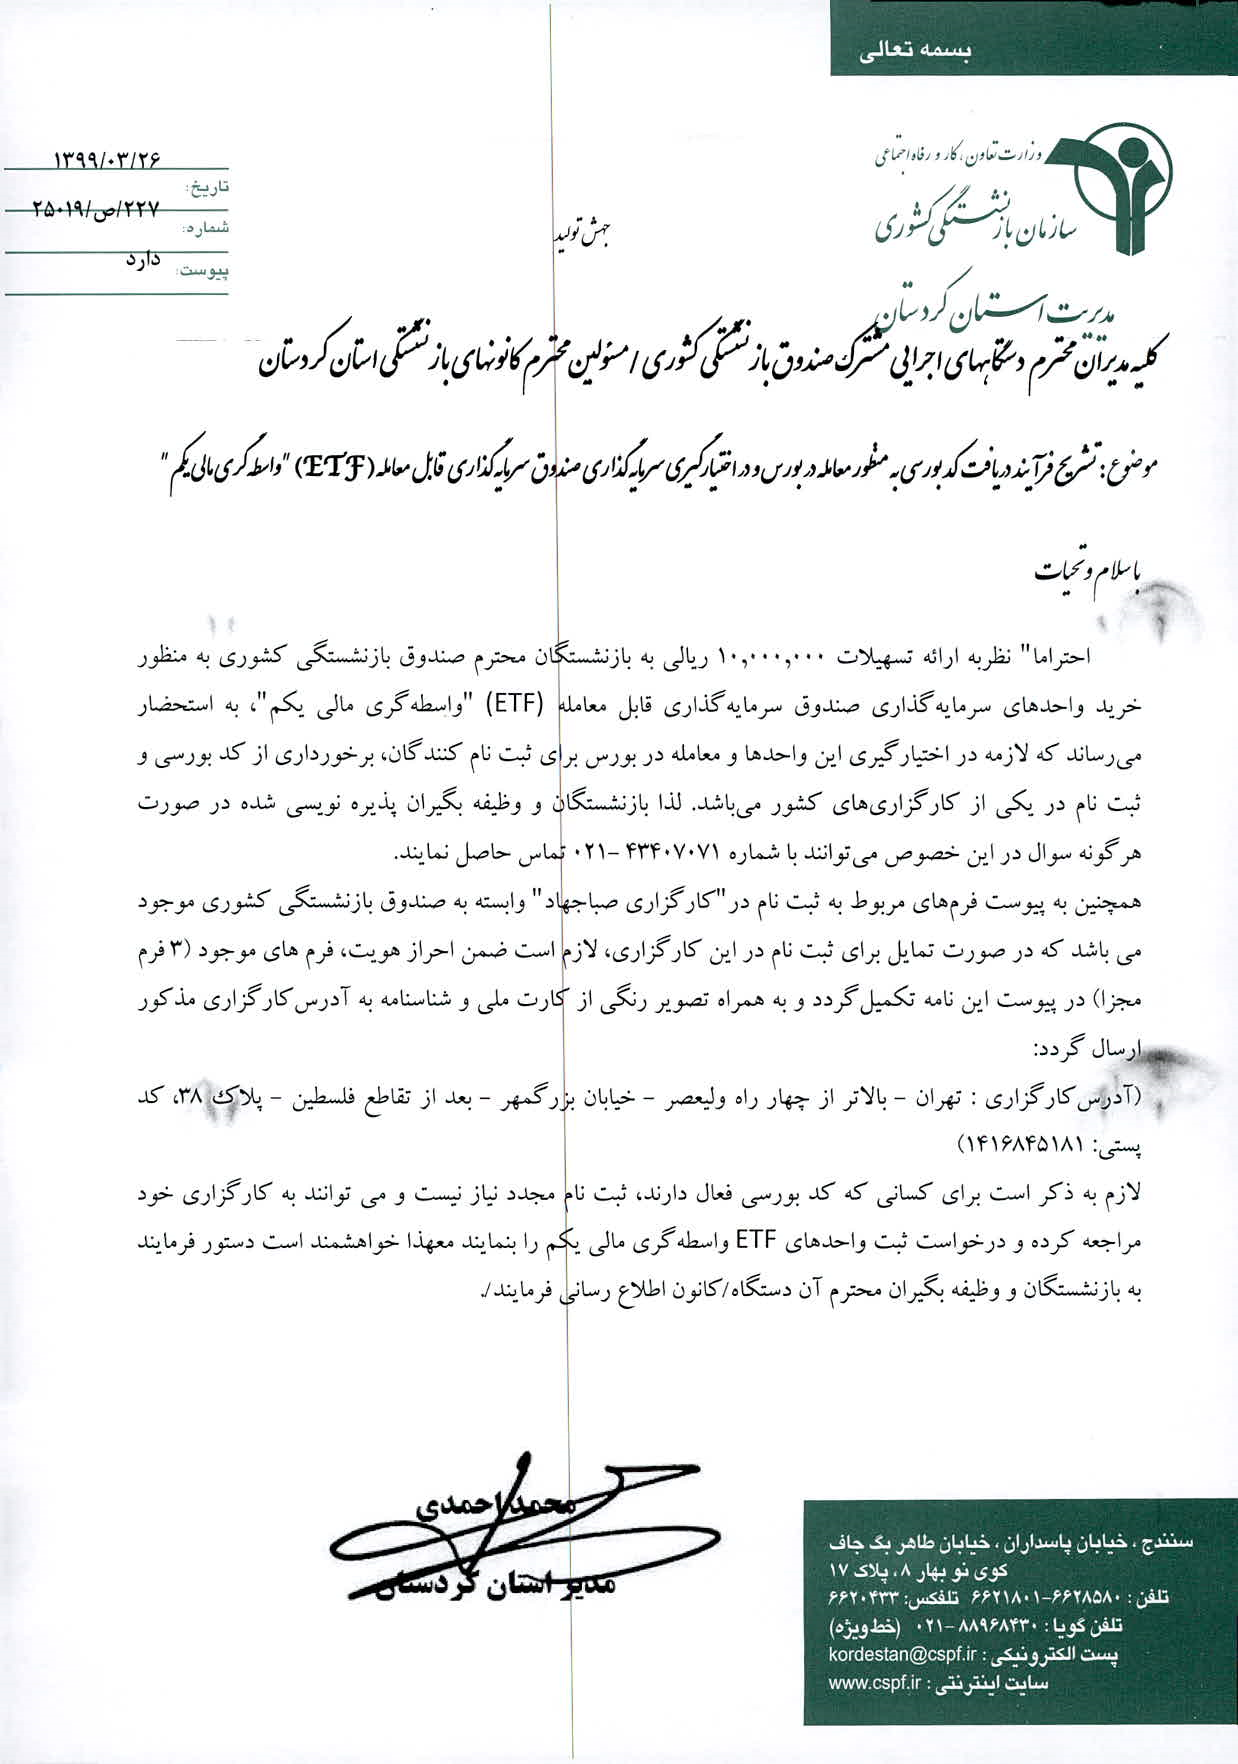 بسمه تعالی
وزارت تعاون، کار و رفاه اجتماعی
سازمان بازنشستگی کشوری
مدیریت استان کردستان
۱۳۹۹/۰۳/۲۶
تاریخ:
۲۵۰۱۹/ص/۲۲۷
شماره:
دارد
پیوست:
جهش تولید
کلیه مدیران محترم دستگاههای اجرایی مشترک صندوق بازنشستگی کشوری / مسئولین محترم کانونهای بازنشستگی استان کردستان
موضوع: تشریح فرآیند دریافت کد بورسی به منظور معامله در بورس و در اختیارگیری سرمایه گذاری صندوق سرمایه گذاری قابل معامله (ETF) "واسطه گری مالی یکم"
با سلام و تحیات
احتراما" نظربه ارائه تسهیلات ۱۰,۰۰۰,۰۰۰ ریالی به بازنشستگان محترم صندوق بازنشستگی کشوری به منظور
خرید واحدهای سرمایه‌گذاری صندوق سرمایه‌گذاری قابل معامله (ETF) "واسطه‌گری مالی یکم"، به استحضار
می‌رساند که لازمه در اختیارگیری این واحدها و معامله در بورس برای ثبت نام کنندگان، برخورداری از کد بورسی و
ثبت نام در یکی از کارگزاری‌های کشور می‌باشد. لذا بازنشستگان و وظیفه بگیران پذیره نویسی شده در صورت
هرگونه سوال در این خصوص می‌توانند با شماره ۴۳۴۰۷۰۷۱ -۰۲۱ تماس حاصل نمایند.
همچنین به پیوست فرم‌های مربوط به ثبت نام در"کارگزاری صباجهاد" وابسته به صندوق بازنشستگی کشوری موجود
می باشد که در صورت تمایل برای ثبت نام در این کارگزاری، لازم است ضمن احراز هویت، فرم های موجود (۳ فرم
مجزا) در پیوست این نامه تکمیل گردد و به همراه تصویر رنگی از کارت ملی و شناسنامه به آدرس کارگزاری مذکور
ارسال گردد:
(آدرس کارگزاری : تهران - بالاتر از چهار راه ولیعصر - خیابان بزرگمهر - بعد از تقاطع فلسطین - پلاک ۳۸، کد
پستی: ۱۴۱۶۸۴۵۱۸۱)
لازم به ذکر است برای کسانی که کد بورسی فعال دارند، ثبت نام مجدد نیاز نیست و می توانند به کارگزاری خود
مراجعه کرده و درخواست ثبت واحدهای ETF واسطه‌گری مالی یکم را بنمایند معهذا خواهشمند است دستور فرمایند
به بازنشستگان و وظیفه بگیران محترم آن دستگاه/کانون اطلاع رسانی فرمایند/.
محمد احمدی
مدیر استان کردستان
سنندج ، خیابان پاسداران ، خیابان طاهر بگ جاف
کوی نو بهار ۸، پلاک ۱۷
تلفن : ۶۶۲۸۵۸۰-۶۶۲۱۸۰۱ تلفکس: ۶۶۲۰۴۳۳
تلفن گویا : ۸۸۹۶۸۴۳۰ -۰۲۱ (خط ویژه)
پست الکترونیکی : kordestan@cspf.ir
سایت اینترنتی : www.cspf.ir